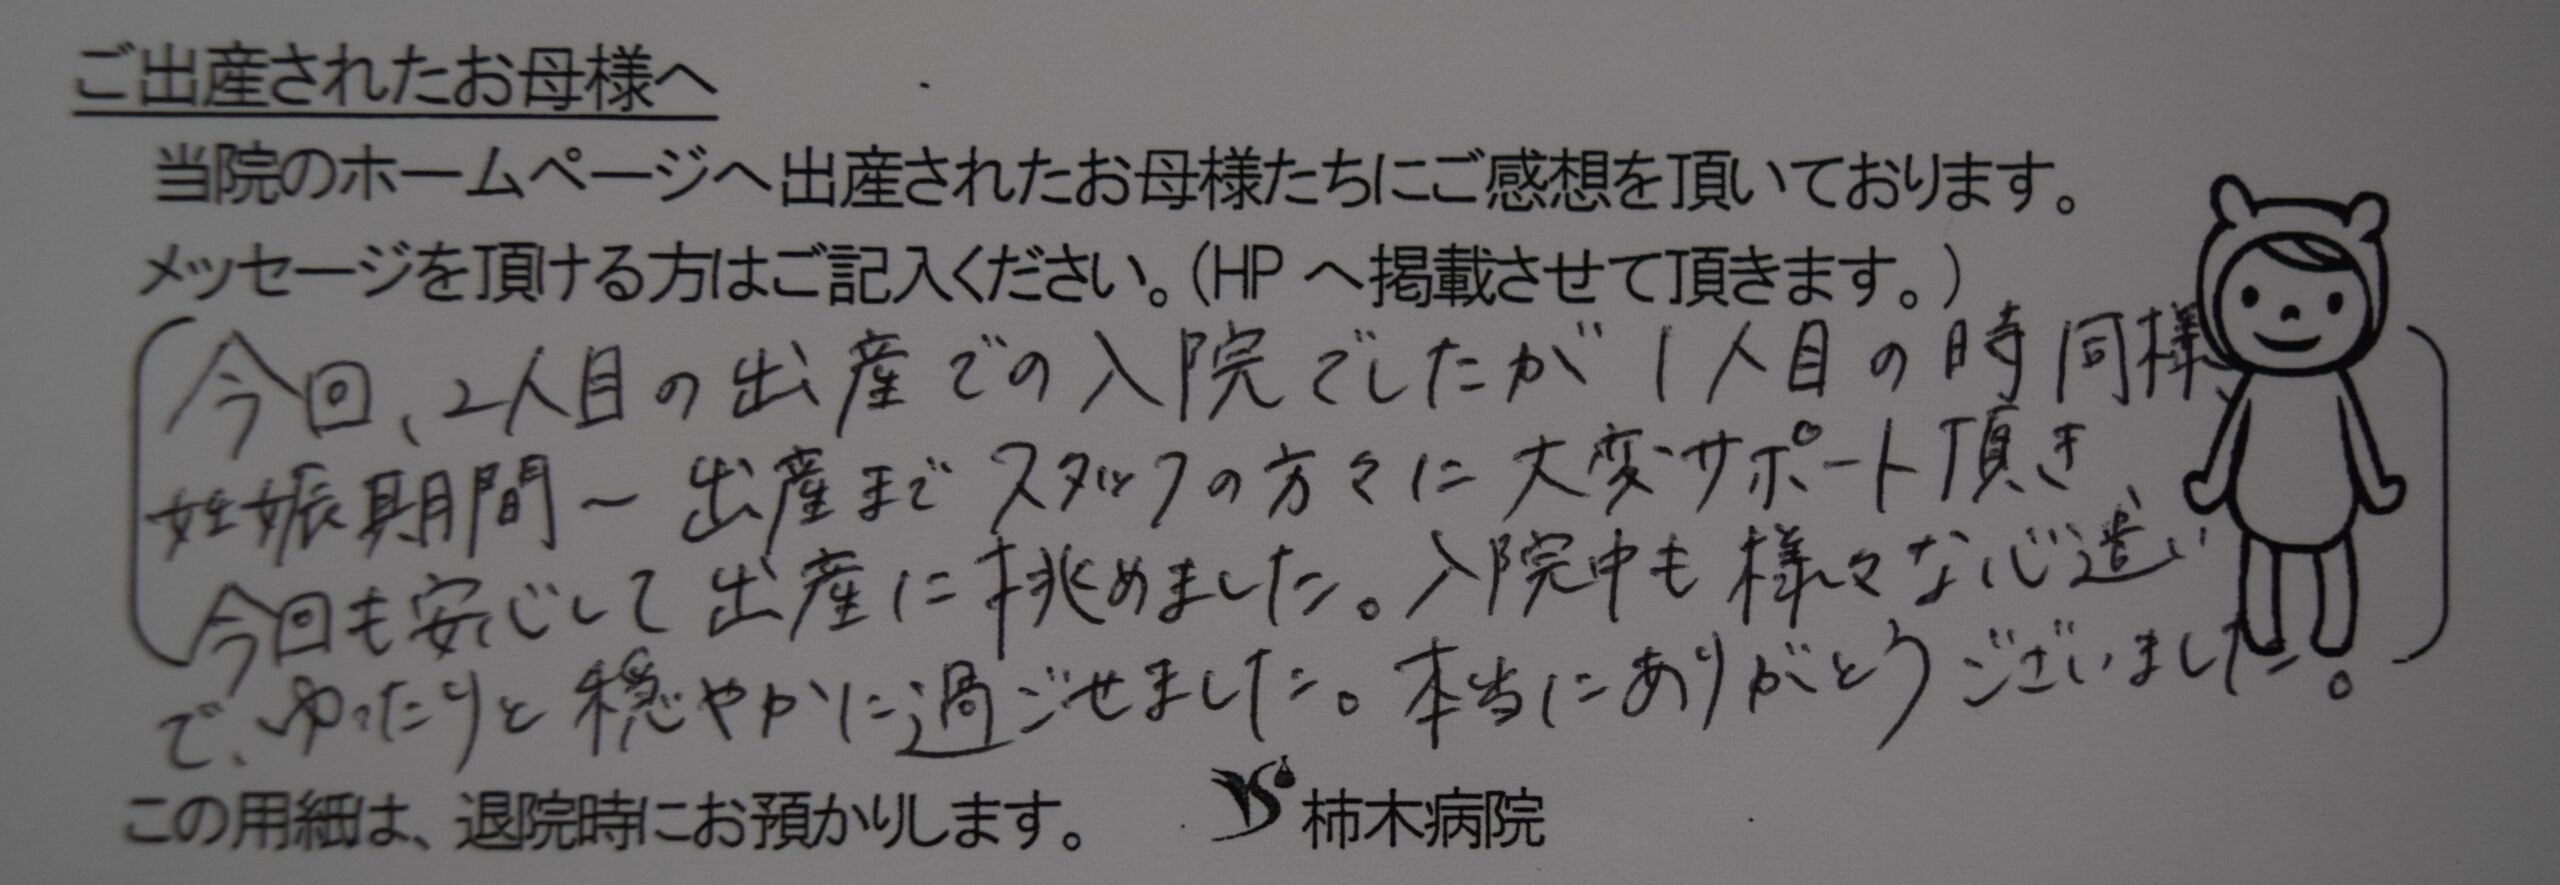 ご出産されたお母様へ
当院のホームページへ出産されたお母様たちにご感想を頂いております。
メッセージを頂ける方はご記入ください。(HP へ掲載させて頂きます。)
今回、2人目の出産での入院でしたが1人目の時同様、
妊娠期間〜出産までスタッフの方々に大変サポート頂き
今回も安心して出産に挑めました。入院中も様々な心遣い
で、ゆったりと穏やかに過ごせました。本当にありがとうございました。
この用紙は、退院時にお預かりします。 柿木病院